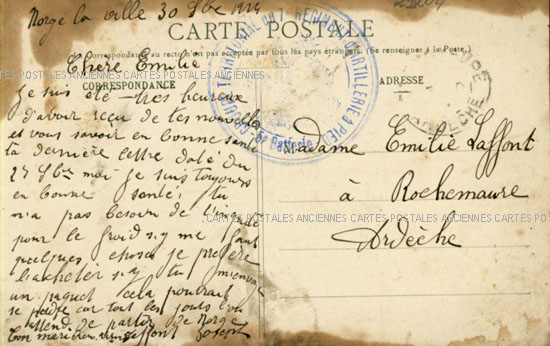 Norge la ville 30 9bre 1914
CARTE POSTALE
La Correspondance au recto n'est pas acceptée par tous les pays étrangers. (Se renseigner à la Poste.)
CORRESPONDANCE
ADRESSE
Chère Emilie
Je suis été très heureux
d'avoir reçu de tes nouvelles
et vous savoir en bonne santé
ta dernière lettre daté du
27 9bre moi je suis toujours
en bonne santé tu
n'a pas besoin de
pour le froid s'y me faut
quelques choses je prefère
l'acheter s'y tu m'envoie
un paquet cela pourrait
se perdre car tout les jours l'on
attend de partir de Norge
ton mari Laffont Joseph
Madame Emilie Laffont
à Rochemaure
Ardèche
RÉGIMENT D'ARTILLERIE À PIED
Batterie
CARTES POSTALES ANCIENNES CARTES POSTALES ANCIENNES CARTES POSTALES ANCIENNES CARTES POSTALES
CARTES POSTALES ANCIENNES CARTES POSTALES ANCIENNES CARTES POSTALES ANCIENNES CARTES POS